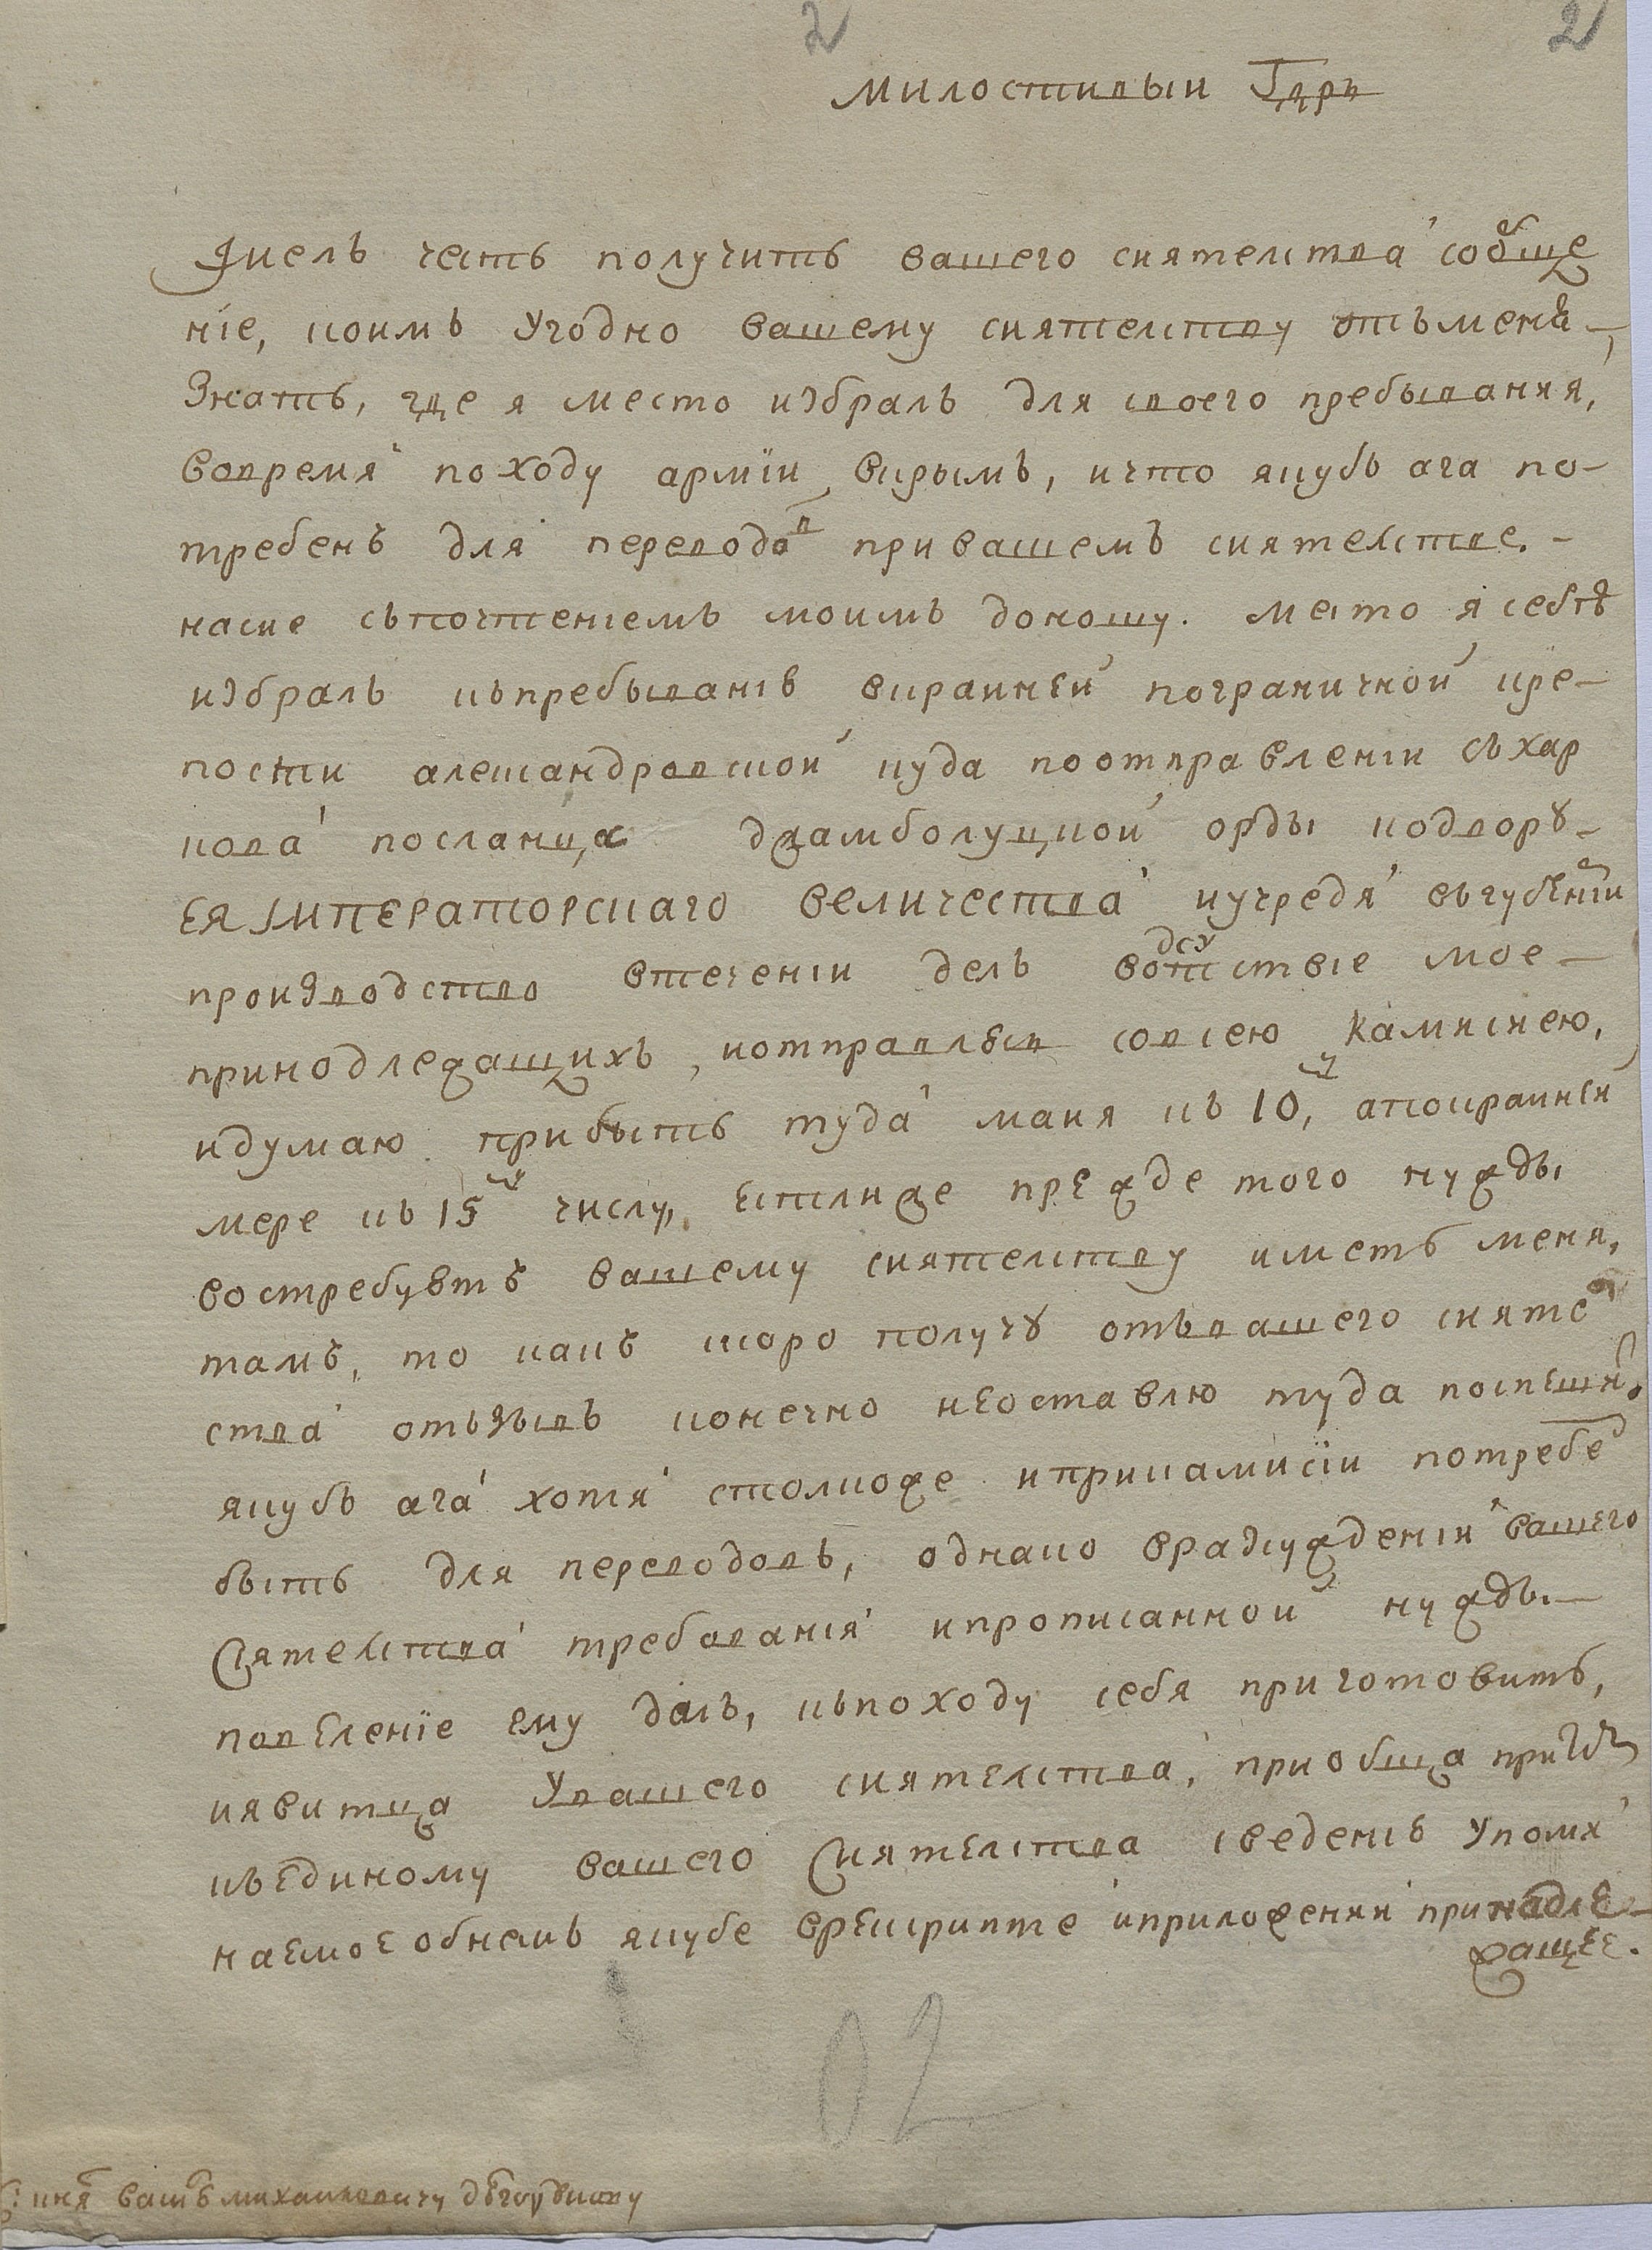 2 2
Милостивыи Гдрь
Яимель честь получить вашего сиятелства сообще
ніе, коимъ угодно вашему сиятелству отъменя
знать, где я место избралъ для своего пребывания,
вовремя походу арміи вкрымъ, ичто якубъ ага по-
требенъ для переводовъ привашемъ сиятелстве. -
насие съпочтениемъ моимъ доношу. место я себѣ
избралъ къпребыванію вкраиней пограничной кре-
пости александровской куда поотправленіи съхар
кова посланца джамболуцкой орды кодвору
ея Імператорскаго величества иучредя въгуберніи
произвоdство втеченіи делъ воотсудствіе мое
принодлежащихъ, иотправлюсь совсею камисиею,
идумаю прибыть туда маия къ 10, апокраиней
мере къ 15 числу, естлиже прежде того нужды
востребуетъ вашему сиятелству иметь меня,
тамъ, то какъ скоро получу отъвашего сияте
ства отъзывъ конечно неоставлю туда поспешить
якубъ ага хотя столкоже иприкамисіи потребе
быть для переводовъ, однако вразсуждении вашего
Сиятелства требования ипрописанной нужды
повеленіе ему далъ, къпоходу себя приготовить,
иявитца увашего сиятелства, приобща при семъ
къединому вашего Сиятелства сведению упомя
наемое обнемъ якубе врескрипте иприложении принадле-
жащее.
02